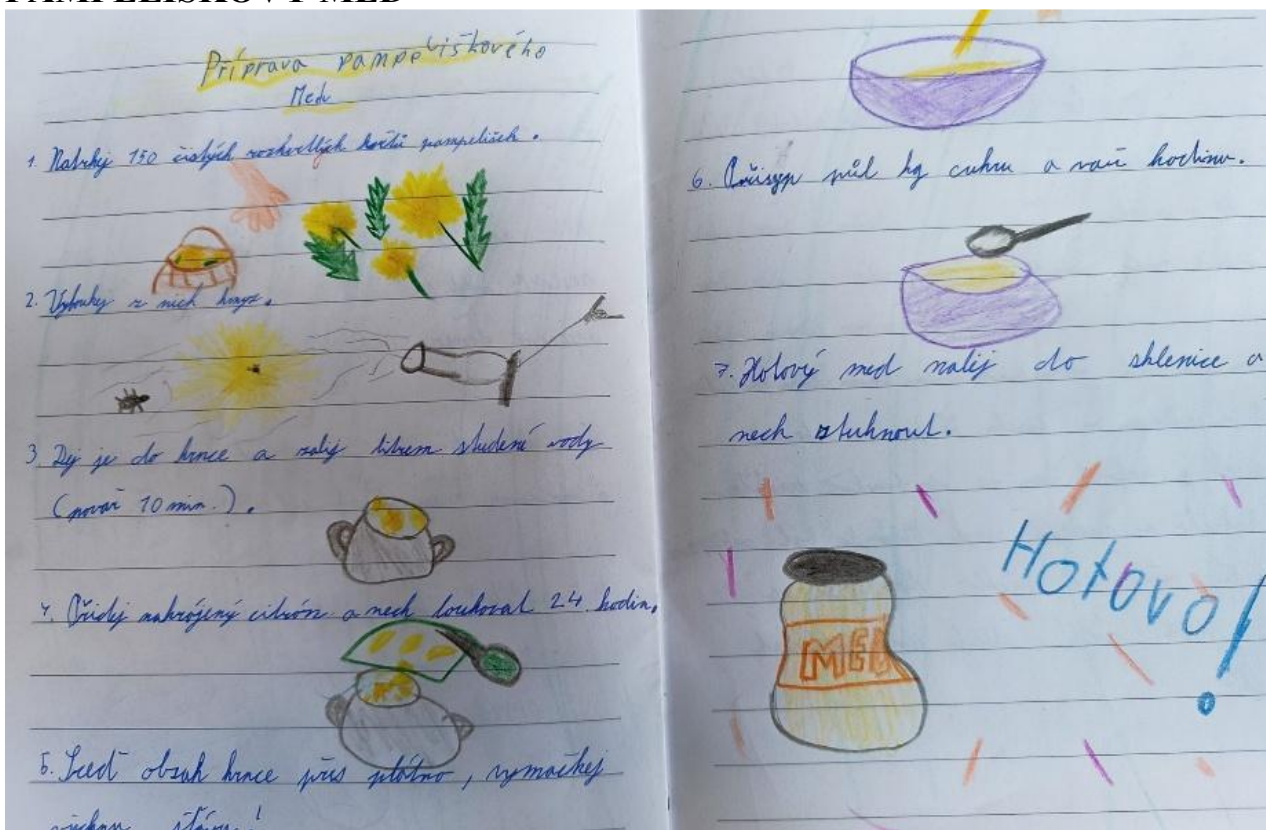 PAMPELIŠKOVÝ MED
Příprava pampeliškového
Medu
1. Natrhej 150 čistých rozkvetlých květů pampelišek.
2. Vyfoukej z nich hmyz.
3. Dej je do hrnce a zalij litrem studené vody
(povař 10 min.).
4. Přidej nakrájený citrón a nech louhovat 24 hodin.
5. Sceď obsah hrnce přes plátno, vymačkej
všechnu šťávu!
6. Přisyp půl kg cukru a vař hodinu.
7. Hotový med nalij do sklenice a
nech ztuhnout.
MED
Hotovo!